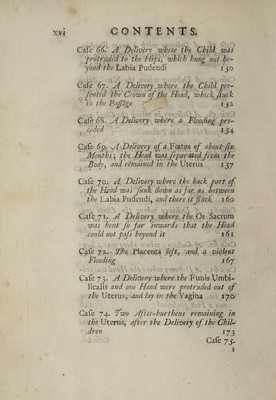 xvi CONTENTS.
Case 66. A Delivery where the Child was
protruded to the Hips, which hung not be-
yond the Labia Pudendi 150
Case 67. A Delivery where the Child pre-
sented the Crown of the Head, which stuck
in the Passage 152
Case 68. A Delivery where a Flooding pre-
ceded 154
Case 69. A Delivery of a Fœtus of about six
Months; the Head was separated from the
Body, and remained in the Uterus 157
Case 70. A Delivery where the back part of
the Head was sunk down as far as between
the Labia Pudendi, and there it stuck 160
Case 71. A Delivery where the Os Sacrum
was bent so far inwards that the Head
could not pass beyond it 161
Case 72. The Placenta left, and a violent
Flooding 167
Case 73. A Delivery where the Funis Umbi-
licalis and one Hand were protruded out of
the Uterus, and lay in the Vagina 170
Case 74. Two After-burthens remaining in
the Uterus, after the Delivery of the Chil-
dren 173
Case 75.